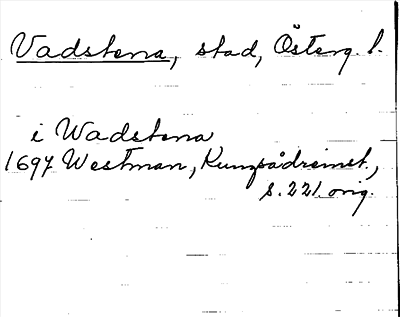 Vadstena, stad, Österg. l.
i Wadstena
1697 Westman, Kungsådreinst.,
s. 221 orig.